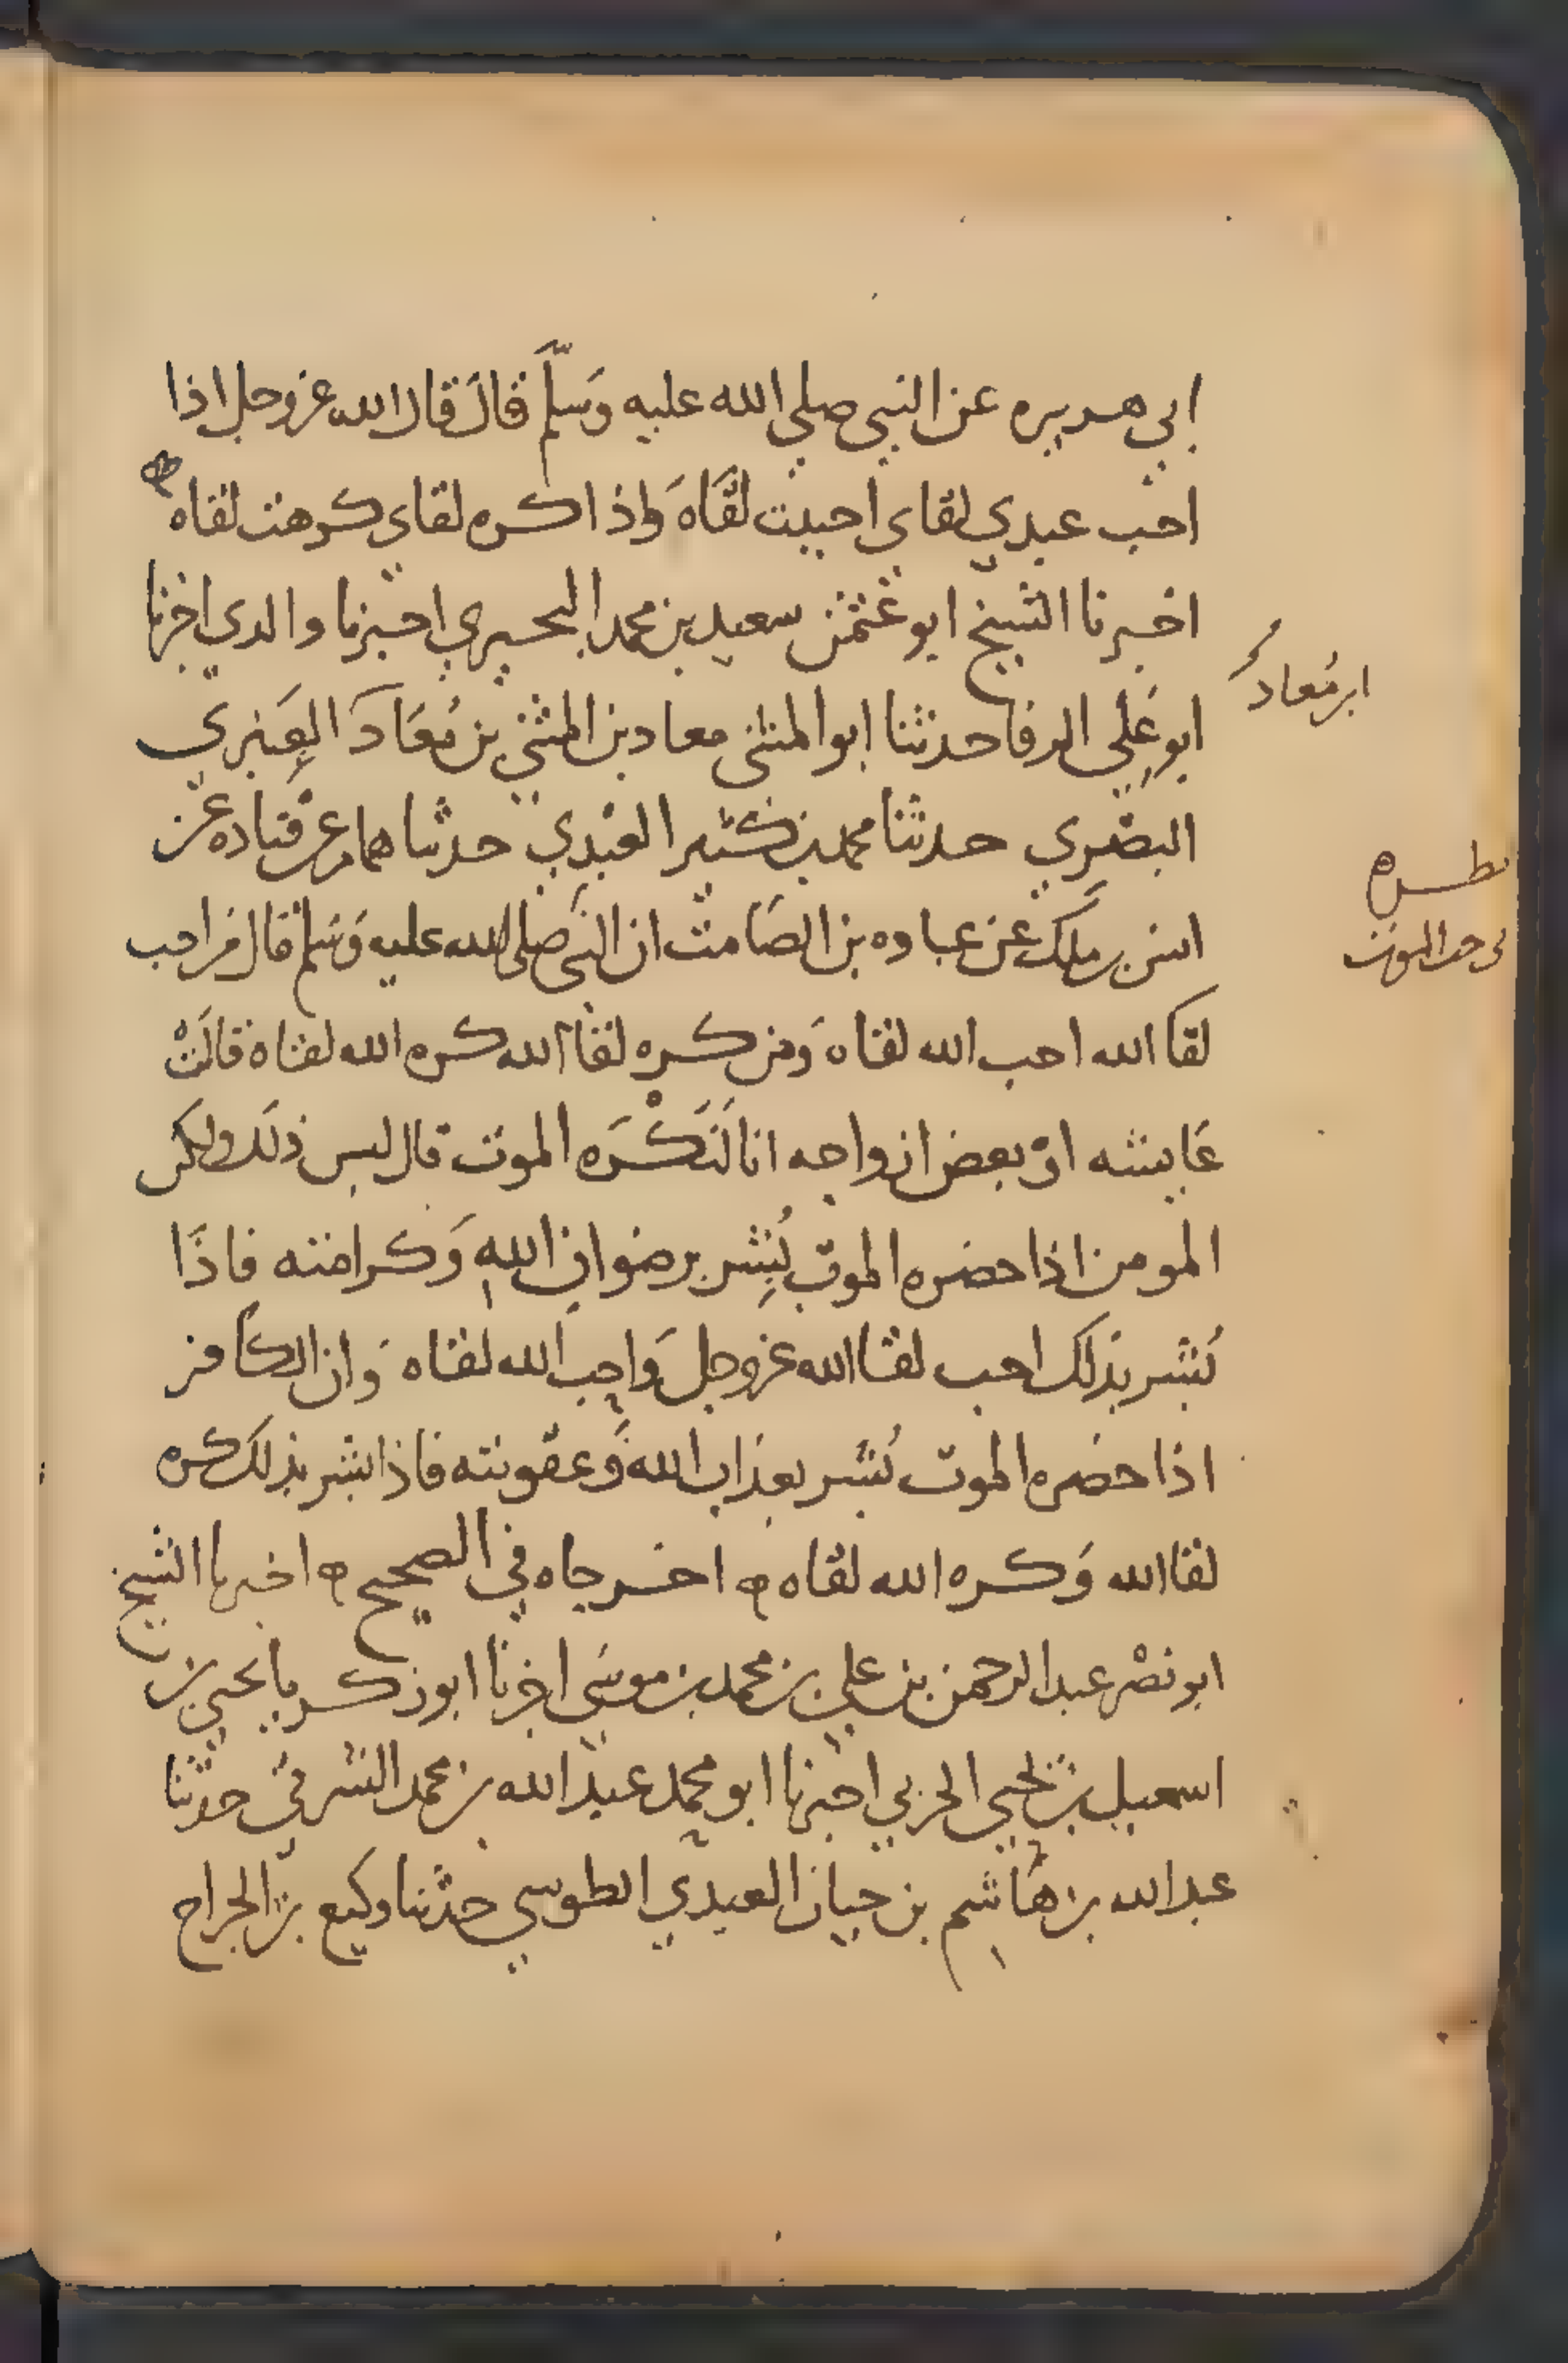 ابي هريره عن النبي صلي الله عليه وَسلّم قالَ قال الله عزوجل اذا
احب عبدي لقاي احببت لقَاهَ واذا كره لقاي كرهت لقاه
اخبرنا الشيخ ابو عثمن سعيد بن محمد البحيري اخبرنا والدي اخبرنا
ابو علي الرفا حدثنا ابو المثنى معاد بن المثنى بن مُعَاد العنبري
ابن مُعاد
البصري حدثنا محمد بن كثير العبدي حدثنا همام عن قتاده عن
انس بن ملك عن عباده بن الصَامت ان النبى صلى الله عليه وَسَلم قال من احب
لقا الله احب الله لقاه وَمن كره لقا الله كره الله لقاه قالَتْ
عَايشه اوْ بعض ازواجه انا لَنَكْرَه الموت قال ليس ذلك ولكن
المومن اذا حضره الموت بُشِر برضوان اللهِ وَكرامته فاذَا
بُشر بذلك احب لقا الله عزوجل وَاحب الله لقاه وَان الكافر
اذا حضره الموت بُشر بعذاب الله وَعقوبته فاذا بشر بذلك كره
لقا الله وَكره الله لقاه ه اخرجاه في الصحيح ه اخبرنا الشيخ
ابو نصْر عبد الرحمن بن علي بن محمد بن موسَي اخبرنا ابو زكريا يحيي بن
اسمعيل بن يحيي الحربي اخبرنا ابو محمد عبد الله بن محمد الشرقي حدثنا
عبد الله بن هَاشم بن حيان العبدي الطوسي حدثنا وكيع بن الجراح